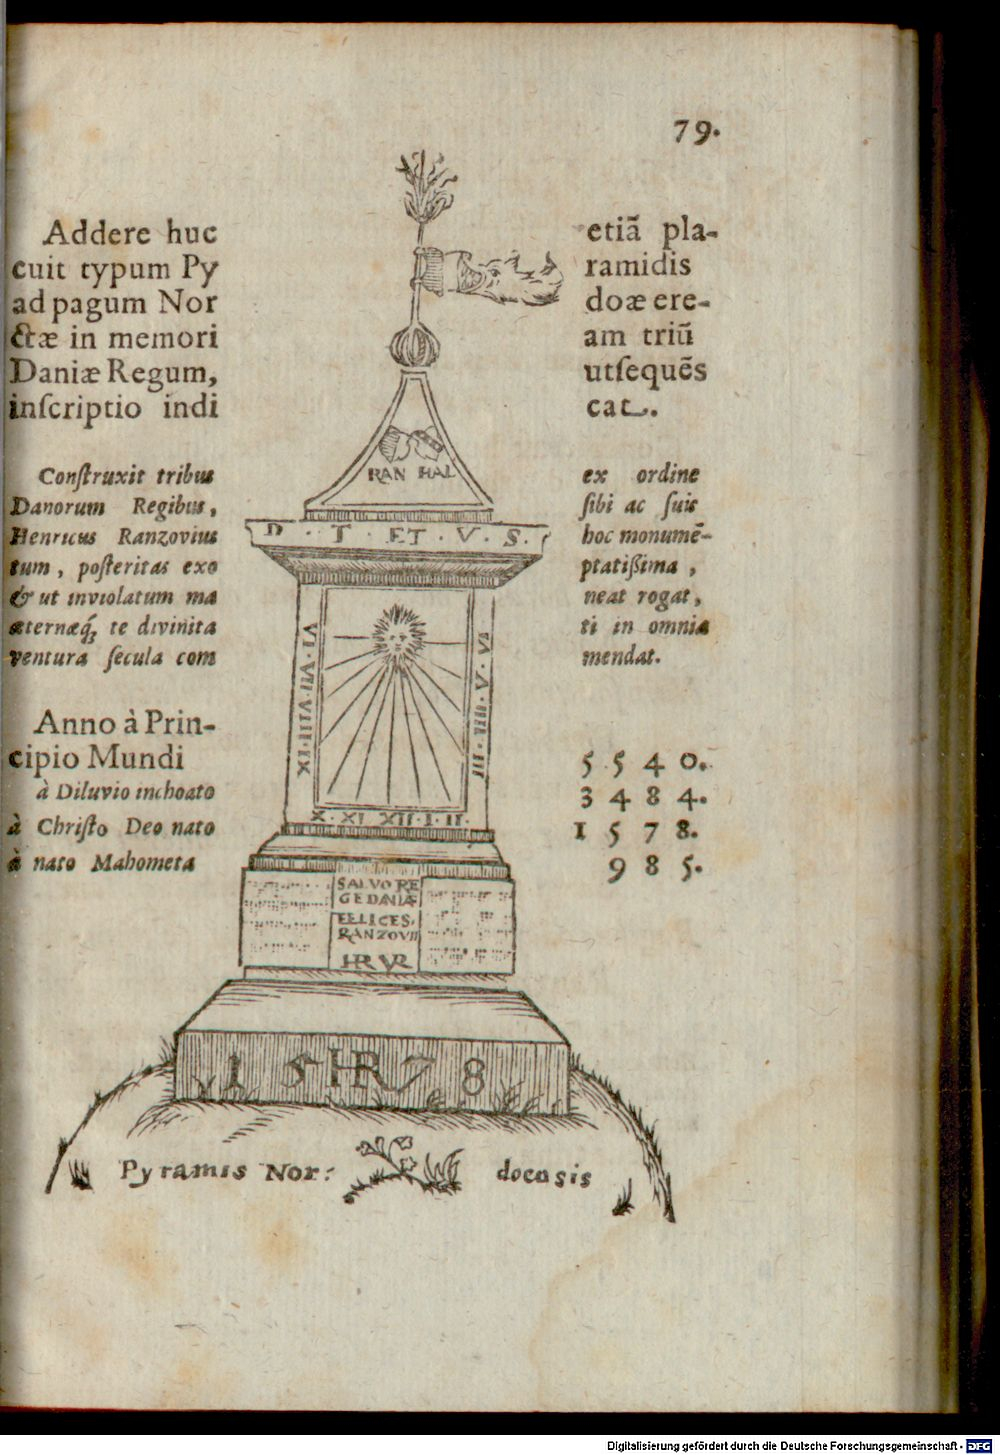 79.
Addere huc etiã pla-
cuit typum Py ramidis
ad pagum Nor doæ ere-
ctæ in memori am triũ
Daniæ Regum, utſequẽs
inſcriptio indi cat.
Conſtruxit tribus ex ordine
Danorum Regibus, ſibi ac ſuis
Henricus Ranzovius hoc monumẽ-
tum, poſteritas exo ptatißima,
& ut inviolatum ma neat rogat,
æternæq́; te divinita ti in omnia
ventura ſecula com mendat.
Anno à Prin-
cipio Mundi 5540.
à Diluvio inchoato 3484.
à Chriſto Deo nato 1578.
à nato Mahometa 985.
RAN HAL
D · T · ET · V · S ·
VI · VII · VIII · IX
X · XI XII · I · II ·
SALVO RE
GE DANIÆ
FELICES.
RANZOVII
HR VR
15 HR 78
Pyramis Nor: docasis
Digitalisierung gefördert durch die Deutsche Forschungsgemeinschaft - DFG